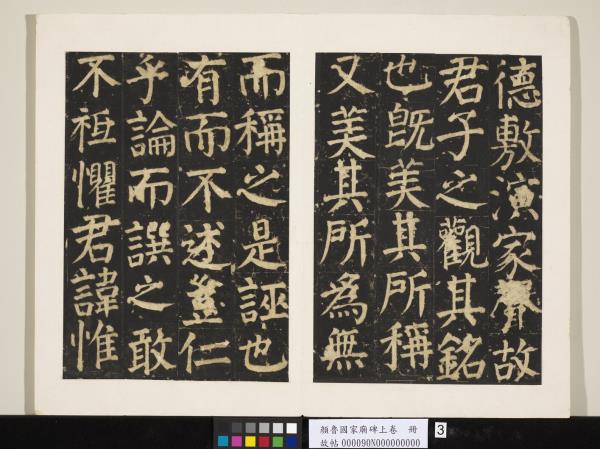 德敷演家聲故
君子之觀其銘
也既美其所稱
又美其所爲無
而稱之是誣也
有而不述豈仁
乎論而譔之敢
不祗懼君諱惟
顏魯國家廟碑上卷 冊
故帖 000090N000000000
3